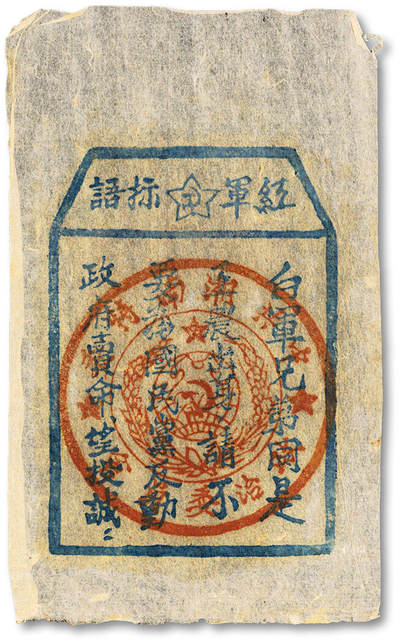 紅軍标語
白軍兄弟同是
工農出身請不
要為國民黨反動
政府賣命望投誠